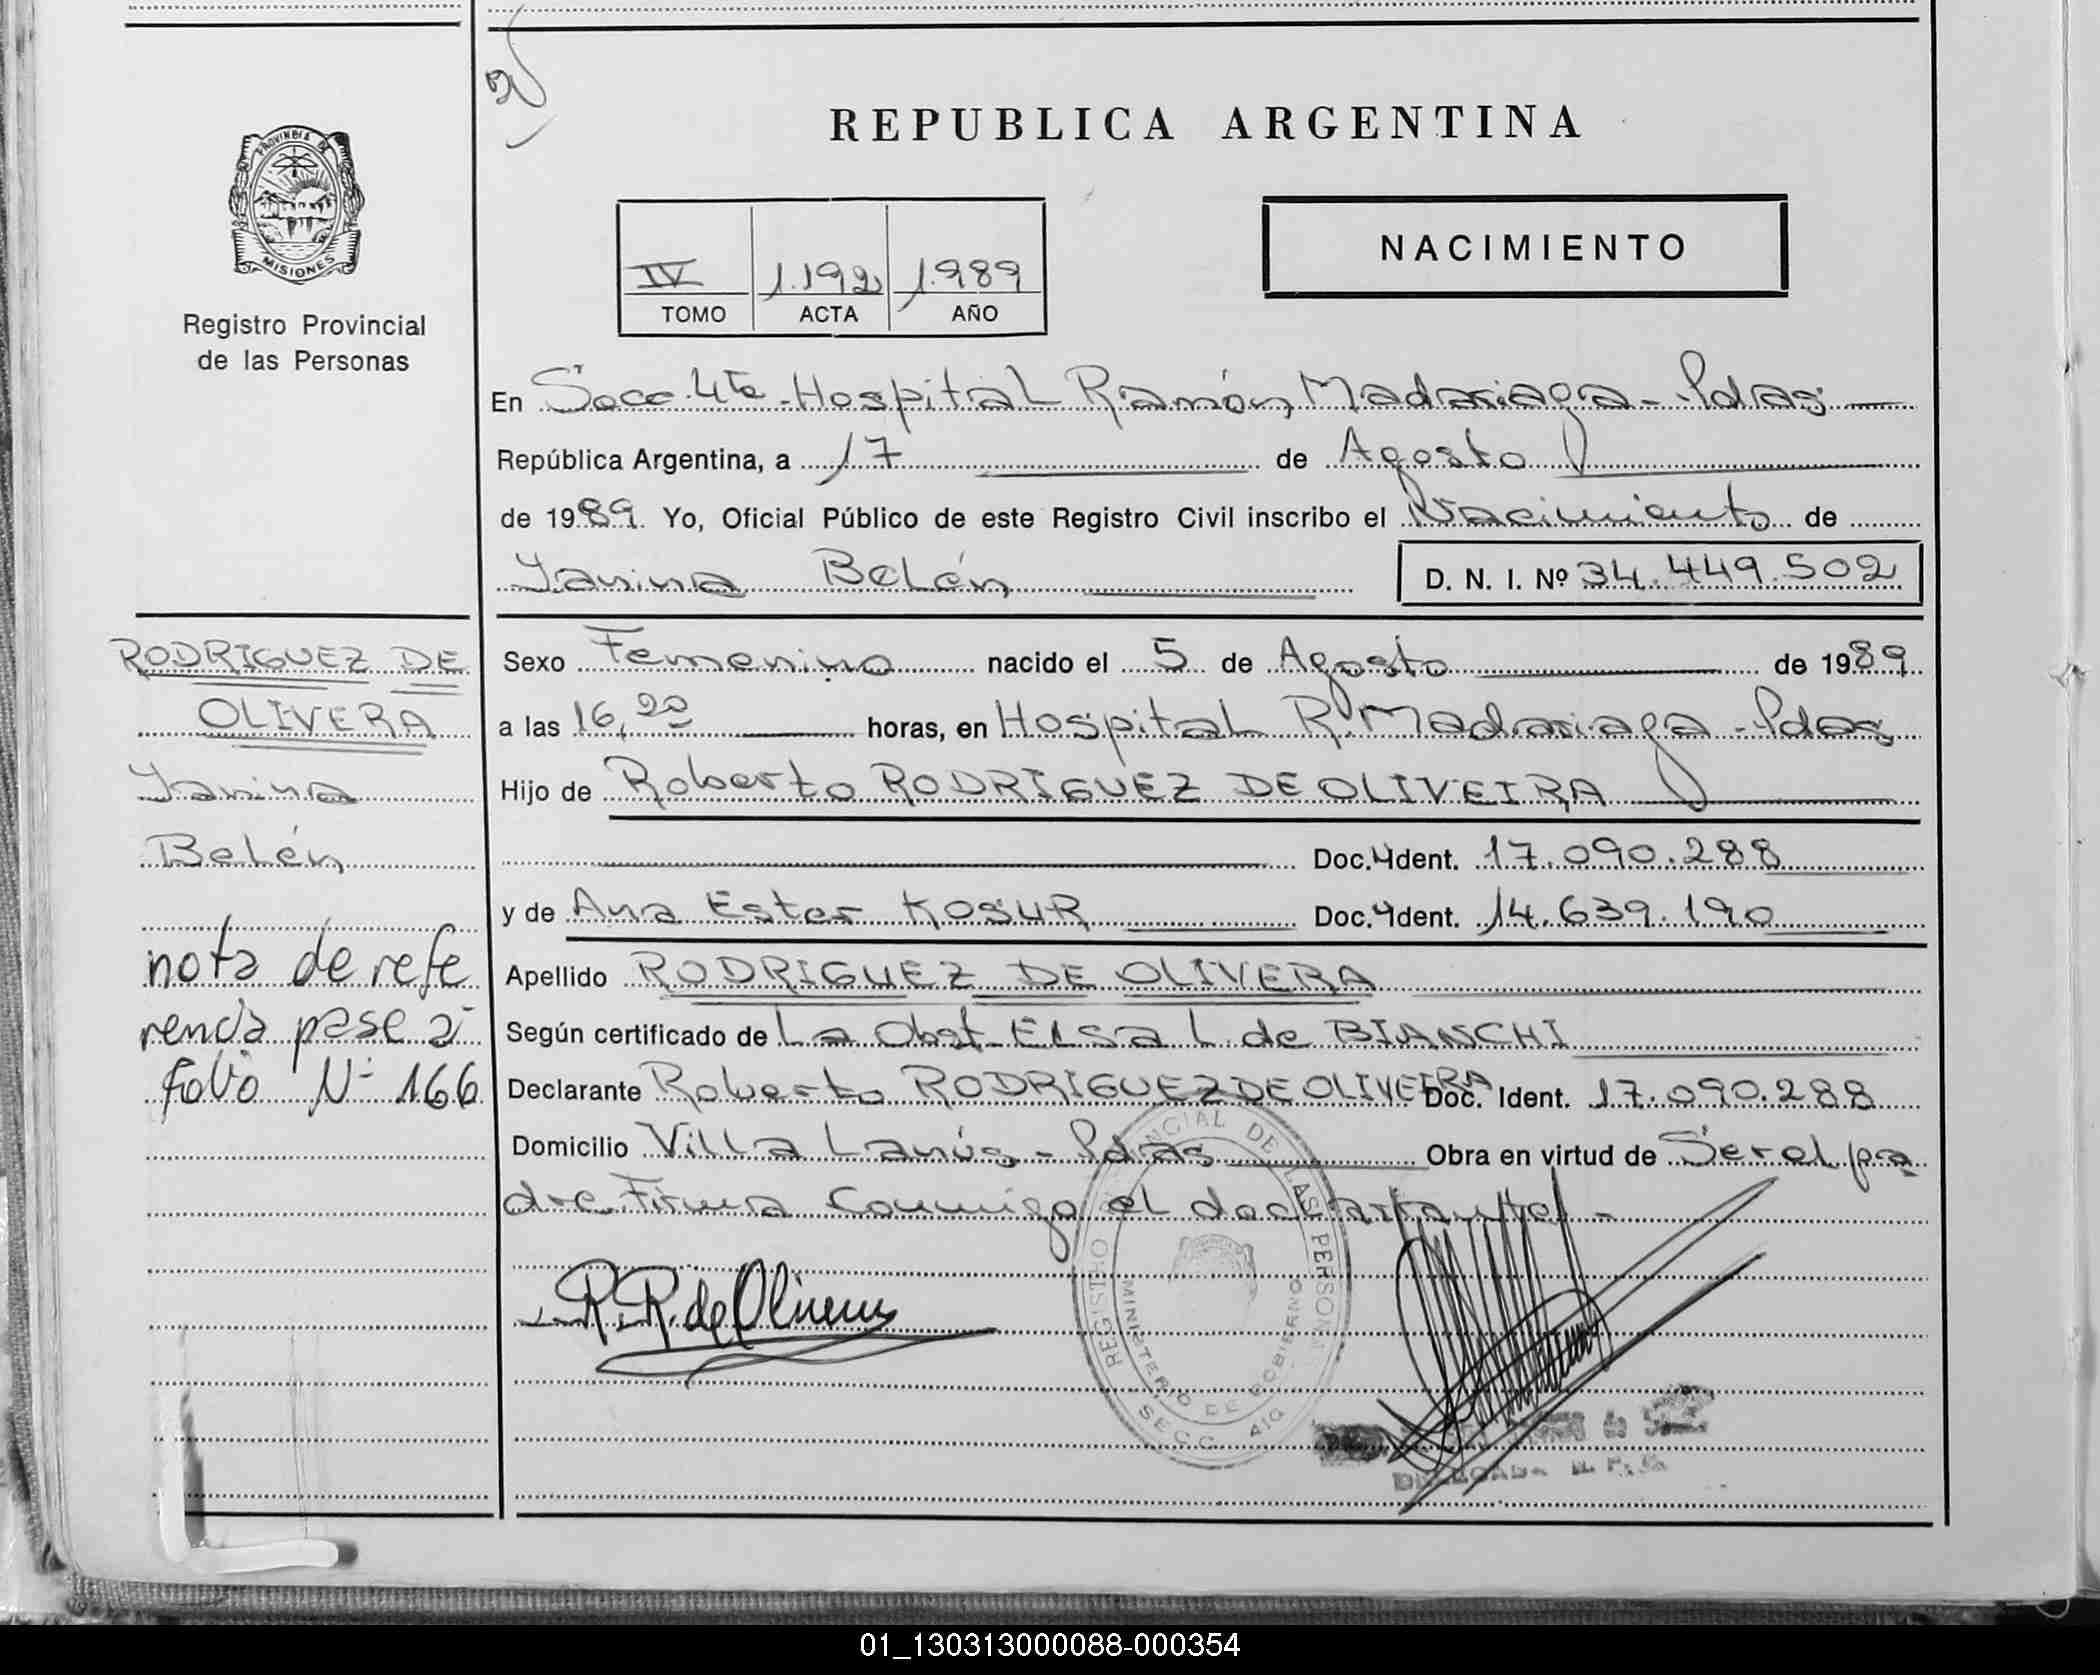 REPUBLICA ARGENTINA
PROVINCIA DE
MISIONES
Registro Provincial
de las Personas
IV 1.192 1.989
TOMO ACTA AÑO
NACIMIENTO
En Secc. 4ta. Hospital Ramón Madariaga - Pdas
República Argentina, a 17 de Agosto
de 1989. Yo, Oficial Público de este Registro Civil inscribo el Nacimiento de
Yanina Belén D. N. I. Nº 34.449.502
RODRIGUEZ DE
OLIVERA
Yanina
Belén
nota de refe
rencia pase a
folio Nº 166
Sexo Femenino nacido el 5 de Agosto de 1989
a las 16,20 horas, en Hospital R. Madariaga - Pdas
Hijo de Roberto RODRIGUEZ DE OLIVEIRA
Doc. Ident. 17.090.288
y de Ana Ester KOSUR Doc. Ident. 14.639.190
Apellido RODRIGUEZ DE OLIVERA
Según certificado de La Obst. Elsa L. de BIANCHI
Declarante Roberto RODRIGUEZ DE OLIVEIRA Doc. Ident. 17.090.288
Domicilio Villa Lanús - Pdas Obra en virtud de Ser el pa
dre. Firma conmigo el declarante -
R.R. de Olivera
REGISTRO PROVINCIAL DE LAS PERSONAS
MINISTERIO DE GOBIERNO
SECC.
01_130313000088-000354